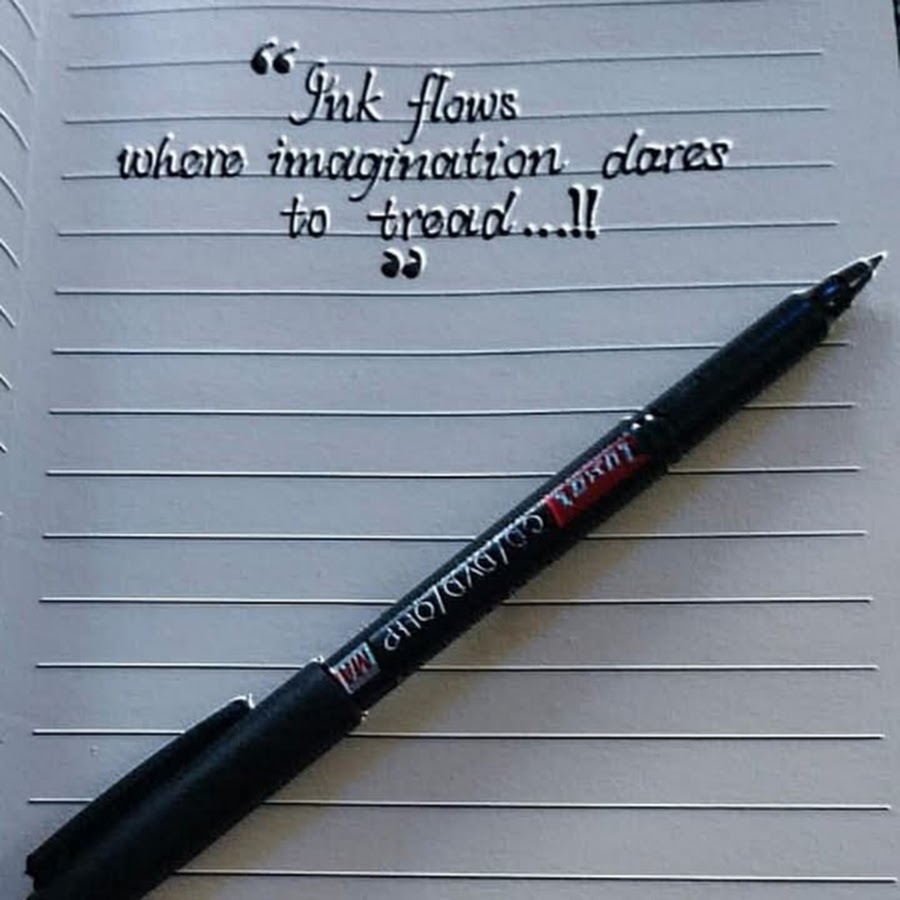 “ Ink flows
where imagination dares
to tread...!!
”
Luxor
CD/DVD/OHP